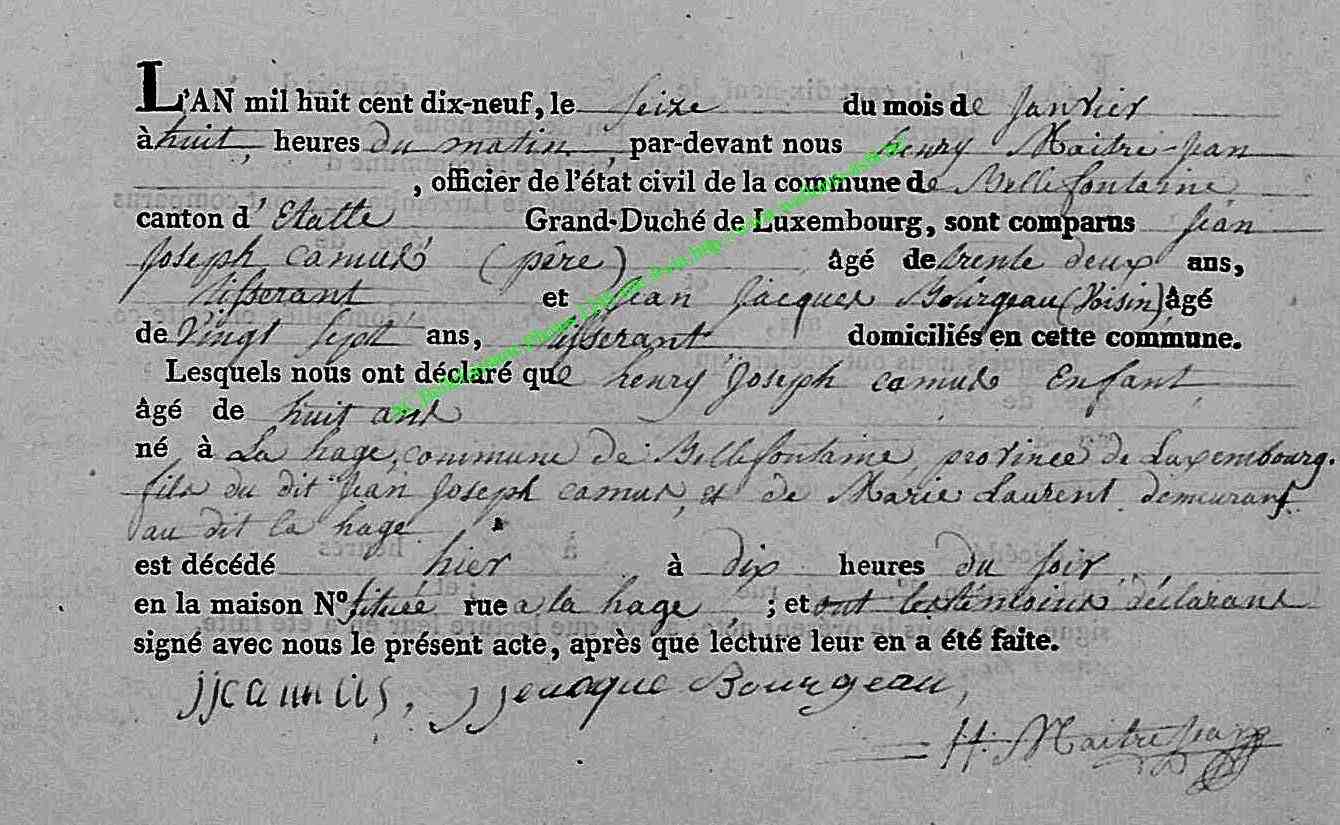 L'AN mil huit cent dix-neuf, le seize du mois de janvier
à huit heures du matin, par-devant nous henry Maitre-jean
, officier de l'état civil de la commune de Bellefontaine
canton d'Etalle Grand-Duché de Luxembourg, sont comparus jean
joseph camus (père) âgé de trente deux ans,
tisserant et jean jacques Bourgeau (voisin) âgé
de vingt sept ans, tisserant domiciliés en cette commune.
Lesquels nous ont déclaré que henry joseph camus Enfant
âgé de huit ans
né à La hage, commune de Bellefontaine, province de Luxembourg.
fils du dit jean joseph camus, et de Marie Laurent demeurant
au dit la hage
est décédé hier à dix heures du soir
en la maison N° située rue a la hage ; et ont les témoins déclarans
signé avec nous le présent acte, après que lecture leur en a été faite.
jjcamus, jjenaque Bourgeau,
H. Maitrejean